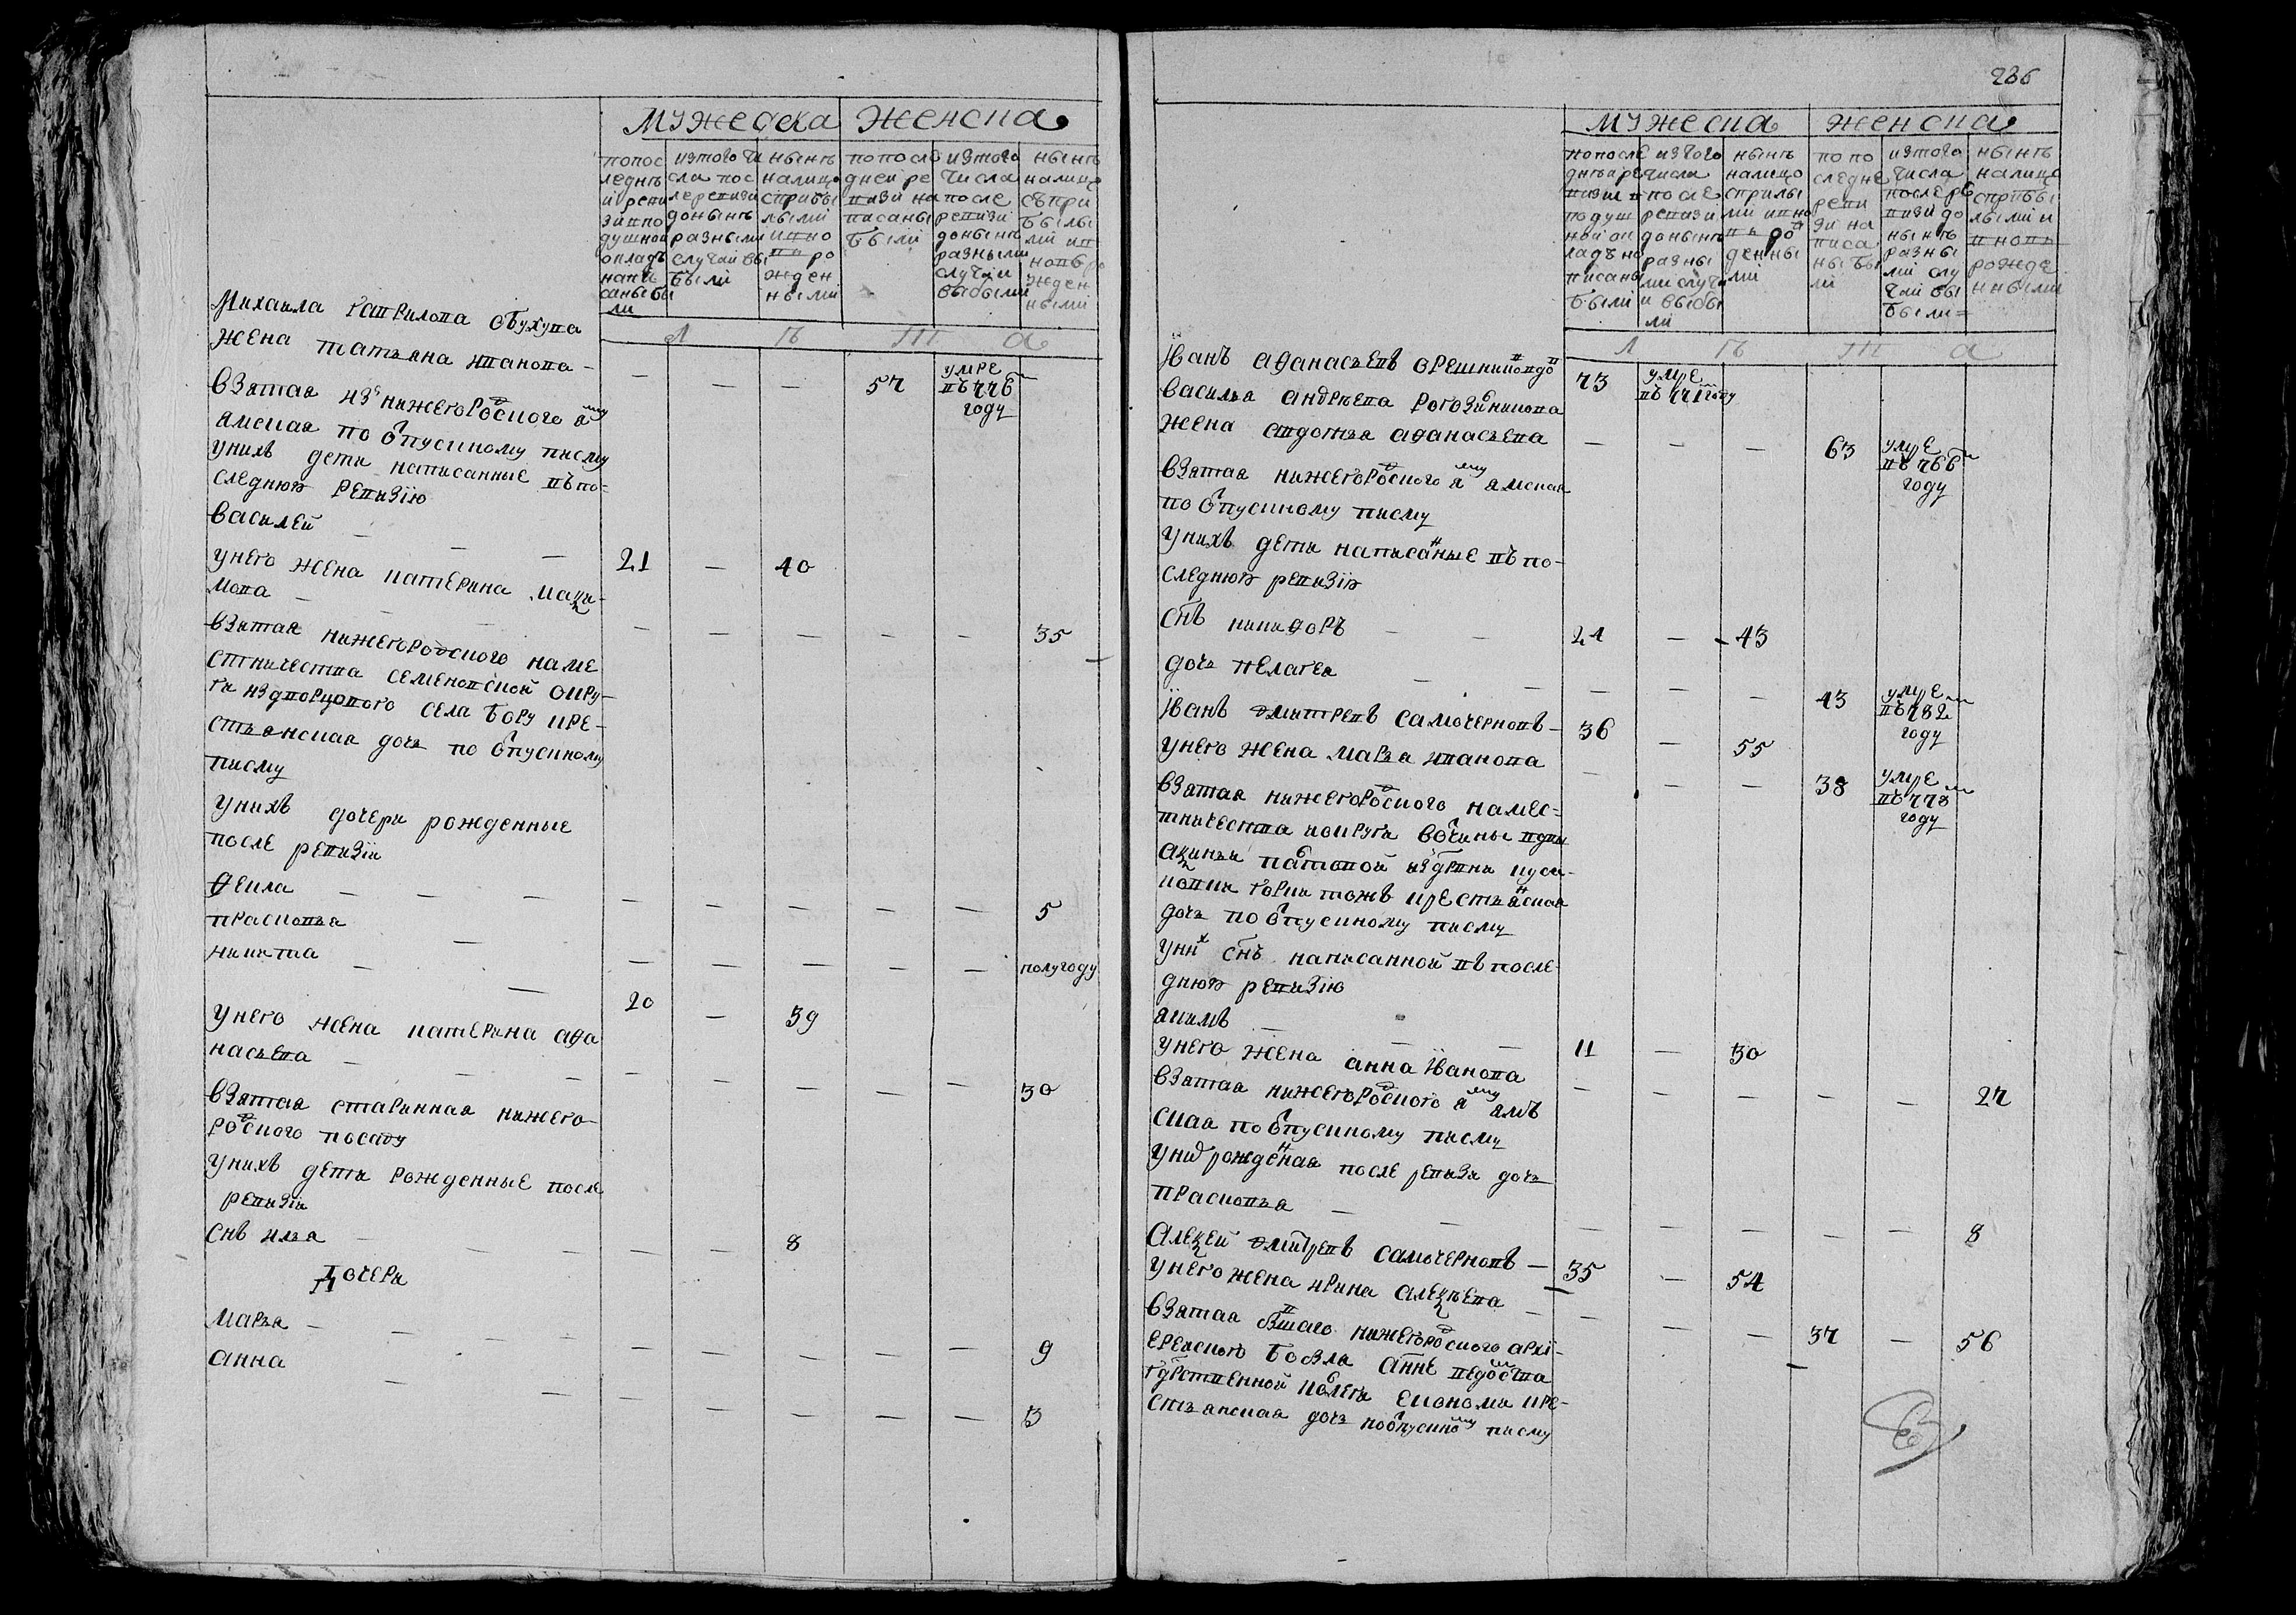 мужеска
женска
попос
леднѣ
й реви
зии по
душной
окладъ
напи
саны бы
ли
изтого чи
сла пос
ле ревизи
донынѣ
разными
случаи вы
были
нынѣ
налицо
сприбы
лыми
и вно
въ ро
жден
ными
по после
дней ре
визи на
писаны
были
изтого
числа
после
ревизи
донынѣ
разными
случаи
выбыли
нынѣ
налицо
съ при
былы
ми и в
новь ро
жден
ными
Л Ѣ Т А
Михаила гаврилова обухува
жена татьяна иванова – – – – 57 умре въ 776 году
взятая изъ нижегородского яму
ямская по отпускному писму
унихъ дети написанные въ по-
следнюю ревизiю
василей – – – 21 – 40
унего жена катерина макси-
мова – – – – – – – 35
взятая нижегородского наме
стничества семеновской окру-
ги из дворцового села бору кре-
стьянская дочь по отпускному
писму
унихъ дочери рожденные
после ревизiи
Фекла – – – – – – – – 5
прасковья – – – – – – полугоду
никита – – 20 – 39
унего жена катерина афо
насьева – – – – – – – – 30
взятая старинная нижего-
родского посаду
унихъ дети рожденные после
ревизiи
снъ илья – – – – – 8
Дочери
марья – – – – – – – – – 9
анна – – – – – – – 3
236
мужеска
женска
попосле
дней ре
визии в
подуш
ной ок
ладъ на
писаны
были
изтого
числа
после
ревизи
донынѣ
разны
ми случа
и выбы
ли
нынѣ
налицо
сприбы
ми и вно
въ ро
денны
ми
по по
следне
реви
зи на
писа
ны бы
ли
изтого
числа
после ре
визи до
нынѣ
разны
ми слу
чаи вы
были
нынѣ
налицо
сприбы
лыми и
вновь
рожде
нными
Л Ѣ Т А
Iванъ афанасьевъ орешников вдов 73 умре въ 771 году
Василья андреева рогозинникова
жена авдотья афанасьева – – – 63 умре въ 766 году
взятая нижегородского яму ямская
по отпускному писму
унихъ дети написаные въ по-
следнюю ревизiю
снъ никифоръ – – 24 – 43
дочь пелагея – – – – – 43 умре въ 782 году
Iванъ дмитревъ самочерновъ – 36 – 55
унего жена марья иванова – – – 38 умре въ 778 году
взятая нижегородского намес-
тничества иокруги вотчины вдвы
аксиньи
дочь по отпускному писму
уних снъ написанной въ после-
днюю ревизiю
якимъ – – – 11 – 30
унего жена анна Iванова – – – – – 27
взятая нижегородского яму ямъ
ская по отпускному писму
уних рожденая после ревизи дочь
прасковья – – – – – – – 8
Алексей дмитревъ самочерновъ – 35 – 54
унего жена ирина алексѣева – – – – 37 – 56
взятая бывшаго нижегородского архi-
ерейского
гдрственной колеги економи кре-
стьянская дочь по отпускному писму